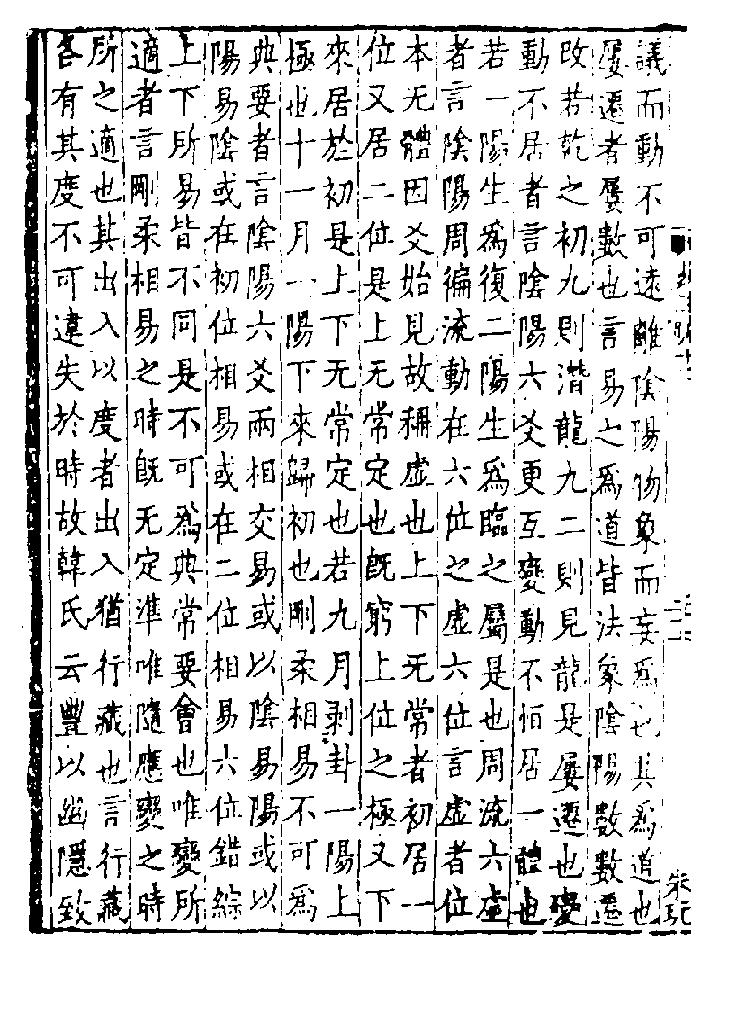 議而動不可遠離陰陽物象而妄爲也其爲道也
屢遷者屢數也言易之爲道皆法象陰陽數數遷
改若乾之初九則潛龍九二則見龍是屢遷也變
動不居者言陰陽六爻更互變動不恒居一體也
若一陽生爲復二陽生爲臨之屬是也周流六虛
者言陰陽周徧流動在六位之虛六位言虛者位
本无體因爻始見故稱虛也上下无常者初居一
位又居二位是上无常定也旣窮上位之極又下
來居於初是上下无常定也若九月剥卦一陽上
極也十一月一陽下來歸初也剛柔相易不可爲
典要者言陰陽六爻兩相交易或以陰易陽或以
陽易陰或在初位相易或在二位相易六位錯綜
上下所易皆不同是不可爲典常要會也唯變所
適者言剛柔相易之時旣无定準唯隨應變之時
所之適也其出入以度者出入猶行藏也言行藏
各有其度不可違失於時故韓氏云豐以幽隱致